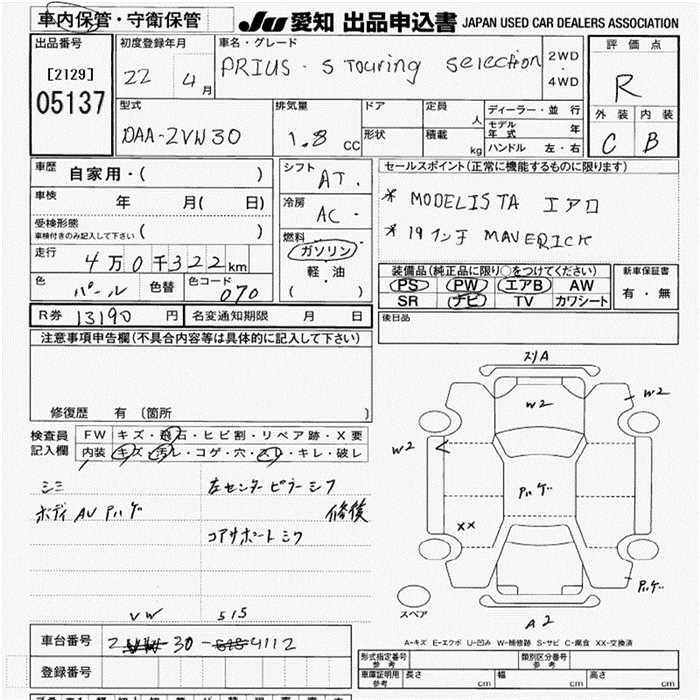 車内保管・守衛保管
JU 愛知 出品申込書 JAPAN USED CAR DEALERS ASSOCIATION
出品番号
[2129]
05137
初度登録年月
22 4月
車名・グレード
PRIUS・S Touring selection
2WD
・
4WD
評価点
R
外装 内装
C B
型式
DAA-ZVW30
排気量
1.8 cc
ドア
形状
定員 人
積載 kg
ディーラー・並行
モデル年式 年
ハンドル 左・右
車歴
自家用・( )
車検 年 月( 日)
受検形態
車検付きのみ記入して下さい ( )
走行 4万0千322km
色 パール 色替 色コード 070
シフト AT.
冷房 AC.
燃料
ガソリン
軽・油
( )
セールスポイント(正常に機能するものに限ります)
* MODELISTA エアロ
* 19インチ MAVERICK
装備品(純正品に限り○をつけてください)
PS PW エアB AW
SR ナビ TV カワシート
新車保証書
有・無
R券 13190円
名変通知期限 月 日
後日品
注意事項申告欄(不具合内容等は具体的に記入して下さい)
修復歴 有 〔箇所 〕
検査員記入欄
FW キズ・飛石・ヒビ割・リペア跡・X要
内装 キズ・汚レ・コゲ・穴・スレ・キレ・破レ
シミ
ボディ AU
左センターピラー
修復
コアサポート
スリA
W2
W2
W2
XX
A2
スペア
A-キズ E-エクボ U-凹み W-補修跡 S-サビ C-腐食 XX-交換済
VW 515
車台番号 Z 30- 4112
登録番号
形式指定番号
参考
類別区分番号
参考
車庫証明用
参考
長さ cm
幅 cm
高さ cm